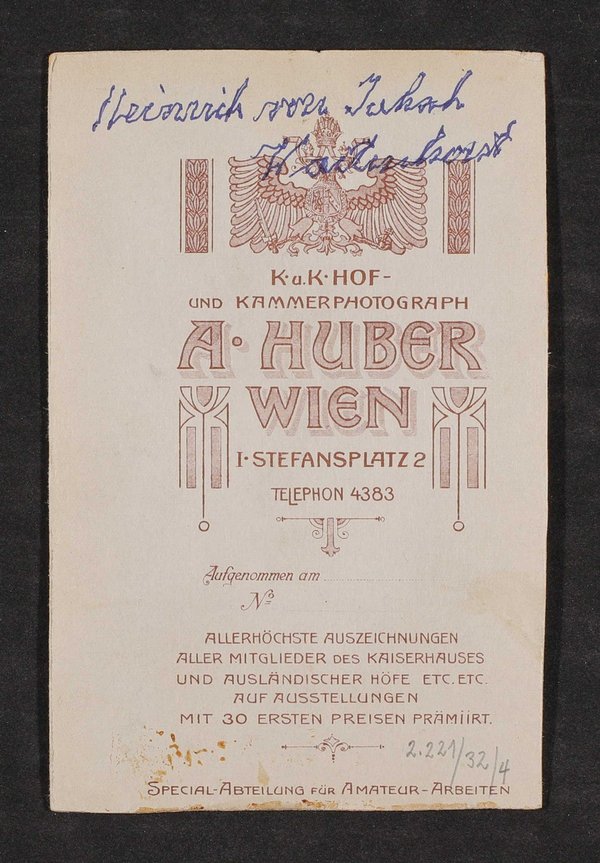 Heinrich von Jukah
K·u.K·HOF-
UND KAMMERPHOTOGRAPH
A· HUBER
WIEN
I·STEFANSPLATZ 2
TELEPHON 4383
Aufgenommen am
Nº
ALLERHÖCHSTE AUSZEICHNUNGEN
ALLER MITGLIEDER DES KAISERHAUSES
UND AUSLÄNDISCHER HÖFE ETC. ETC.
AUF AUSSTELLUNGEN
MIT 30 ERSTEN PREISEN PRÄMIIRT.
2.221/32/4
SPECIAL-ABTEILUNG FÜR AMATEUR-ARBEITEN